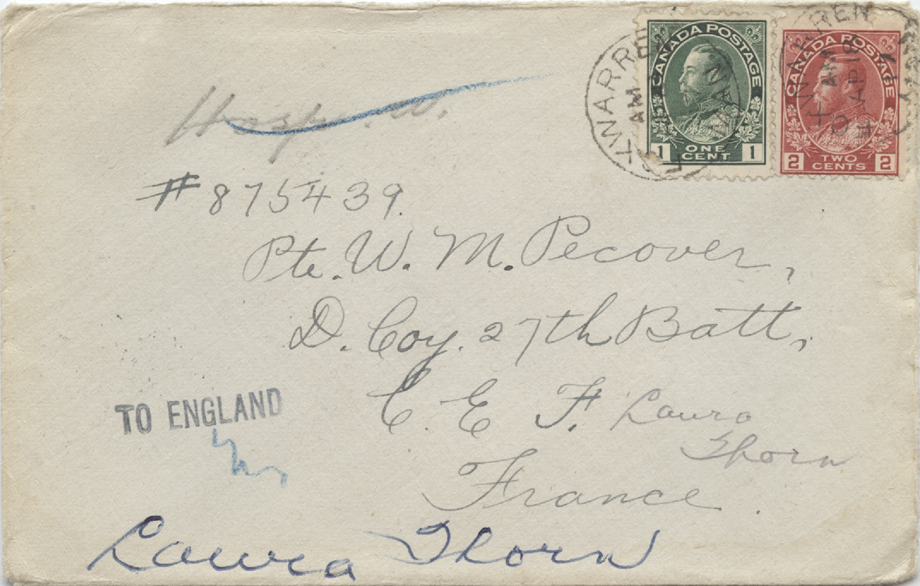 CANADA POSTAGE
1 ONE CENT 1
CANADA POSTAGE
2 TWO CENTS 2
AM
AM
# 875439
Pte. W. M. Pecover,
D. Coy. 27th Batt,
C. E. F. Laura
Thorn
France
TO ENGLAND
Laura Thorn